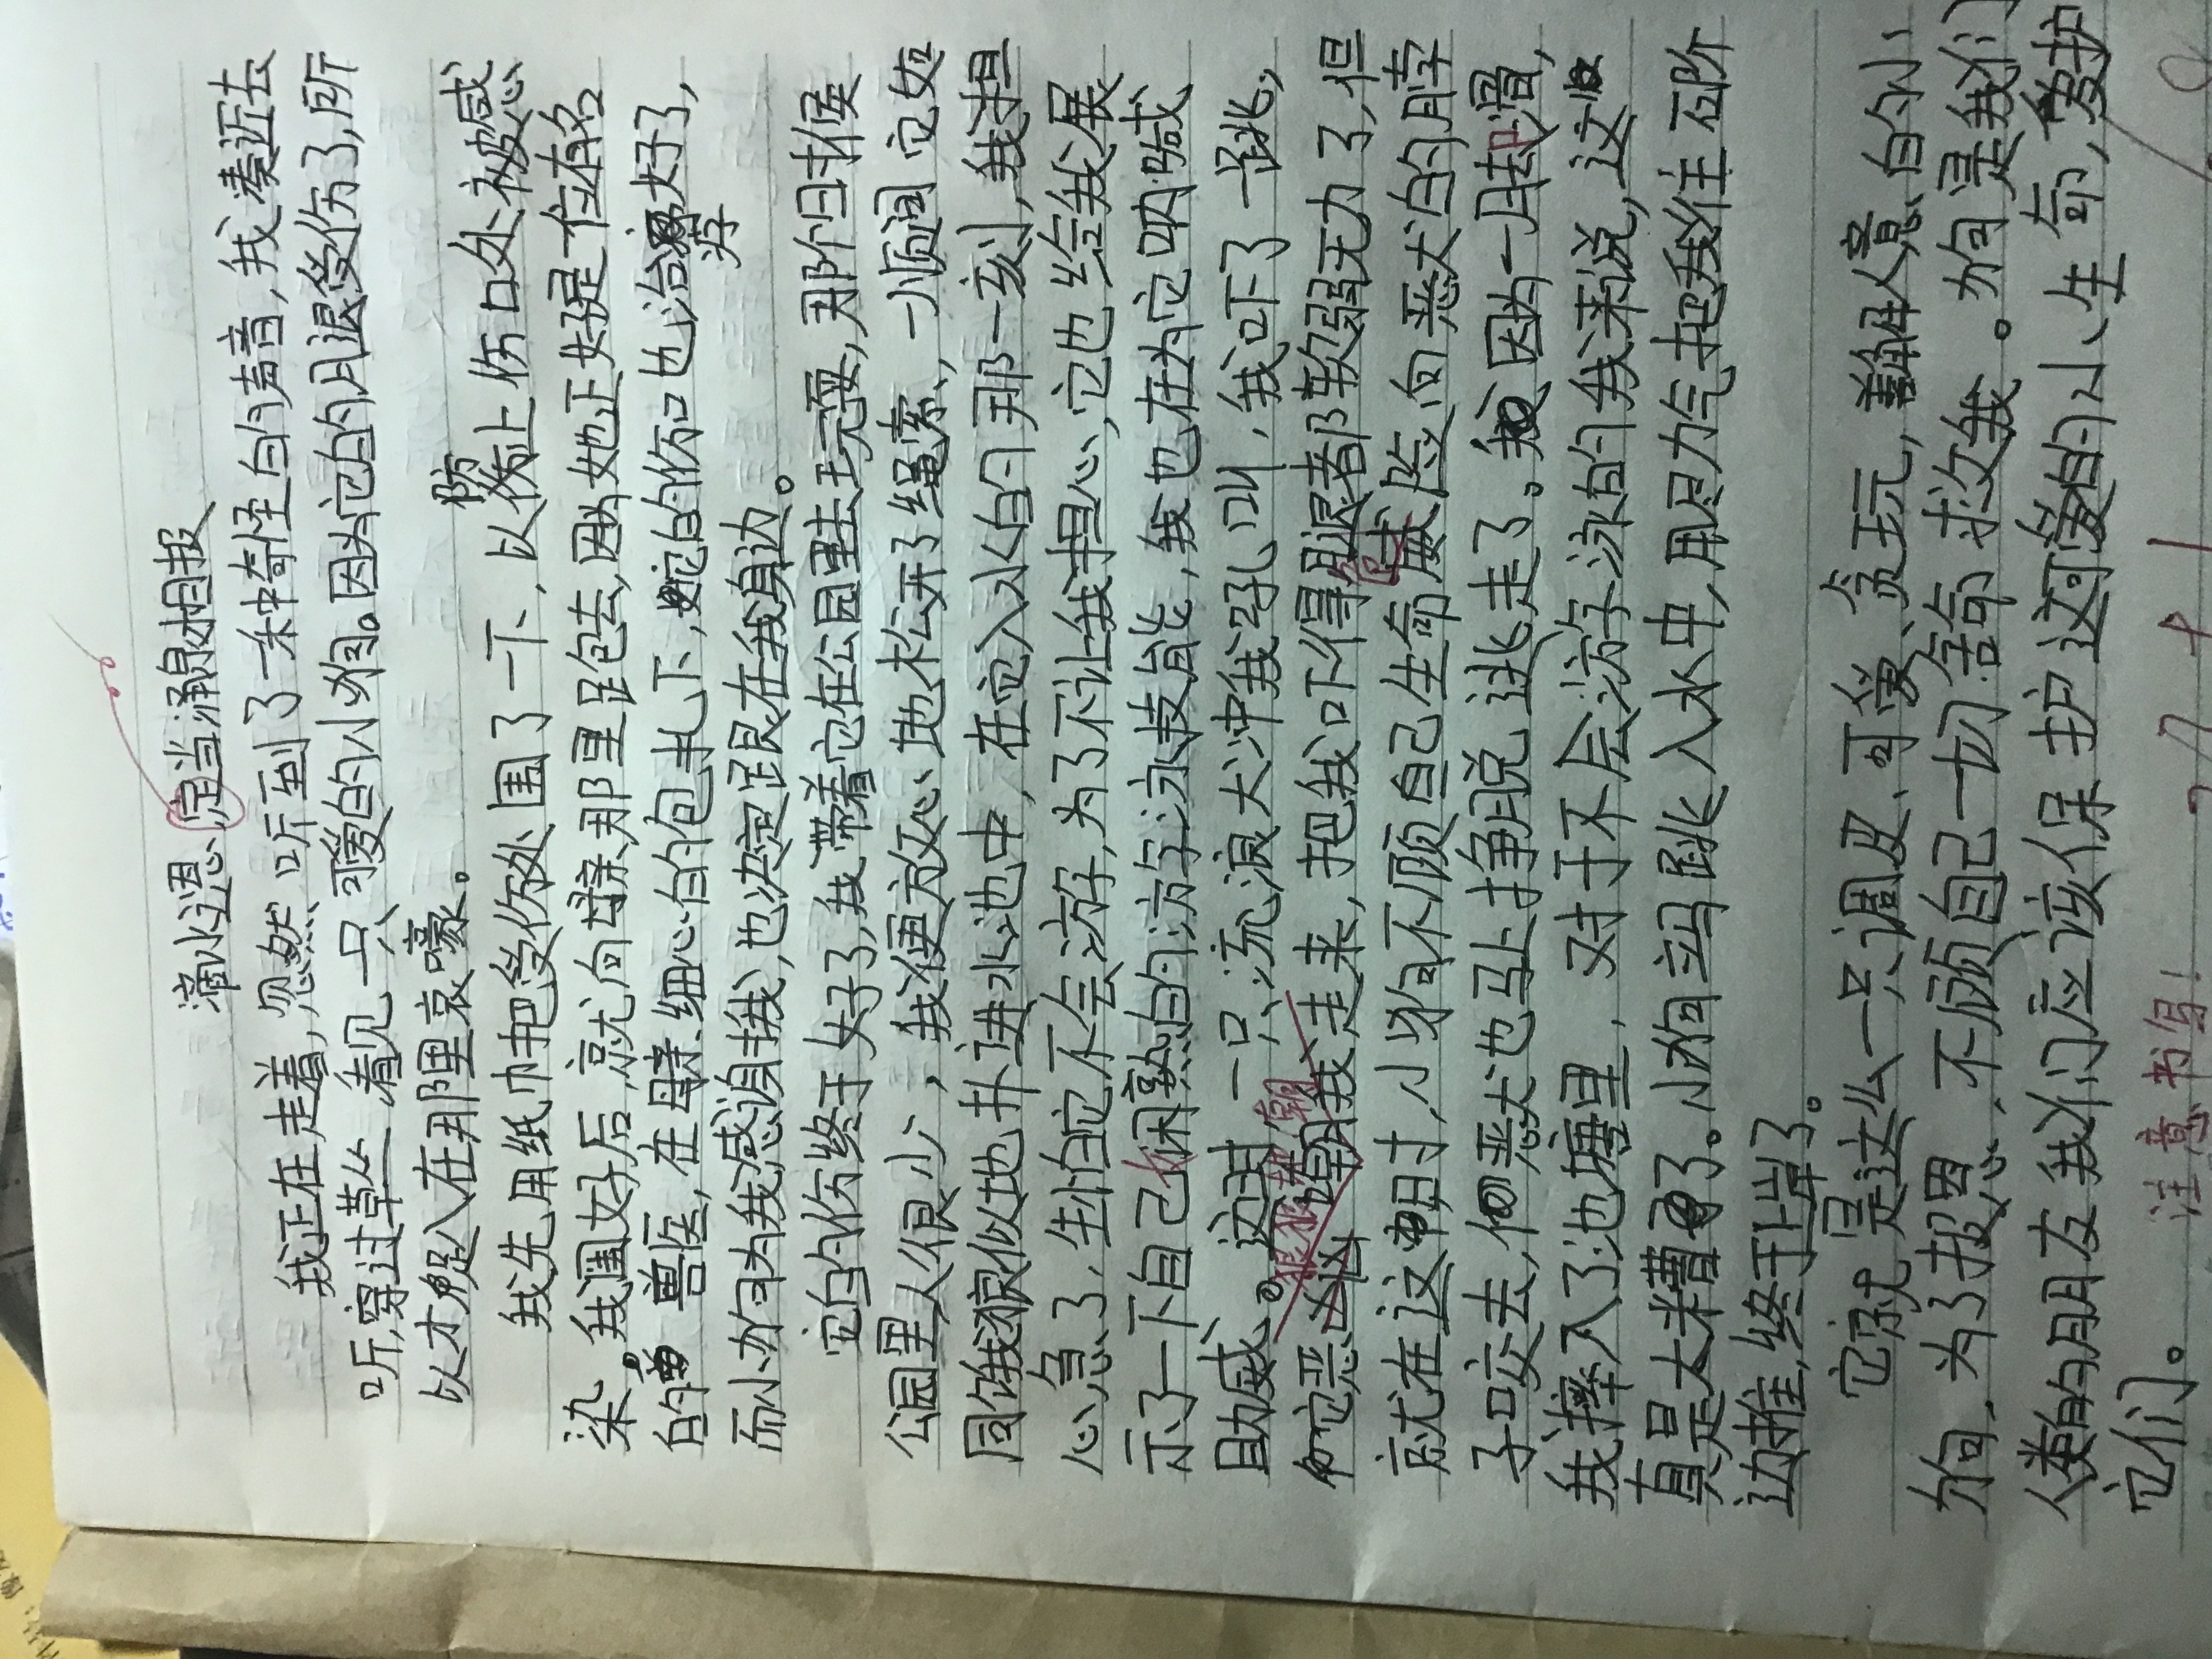 滴水之恩定当涌泉相报
我正在走着,忽然听到了一种奇怪的声音,我凑近去
听,穿过草丛看见一只可爱的小狗。因为它的腿受伤了,所
以才趴在那里哀嚎。
我先用纸巾把受伤处围了一下,以防止伤口处被感
染。我围好后,就向母亲那里跑去,因为她正好是一位有名
的兽医,在母亲细心的包扎下,它的伤口也治好了,
而小狗为我感谢我,也决定跟在我身边。
它的伤终于好了,我带着它在公园里去玩耍,那个时候
公园里人很少,我便放心地松开了绳索,一顺间它如
同饿狼似地扑进水池中,在它入水的那一刻,我担
心急了,生怕它不会游,为了不让我担心,它也给我展
示了一下自己娴熟的游泳技能,我也在为它呐喊
助威。这时一只流浪犬冲我吼叫,我吓了一跳,
它恶狠狠朝我走来,把我吓得腿都软弱无力了,但
就在这时,小狗不顾自己生命危险,向恶犬的脖
子咬去,恶犬也马上挣脱逃走了。因为一脚滑,
我摔入了池塘里,对于不会游泳的我来说,这
真是太糟了。小狗立马跳入水中,用尽力气把我往石阶
边推,终于上岸了。
它就是这么一只调皮、可爱、贪玩,善解人意的小
狗,为了报恩,不顾自己一切舍命救我。狗是我们
人类的朋友我们应该保护这可爱的小生命,爱护
它们。
注意书写!